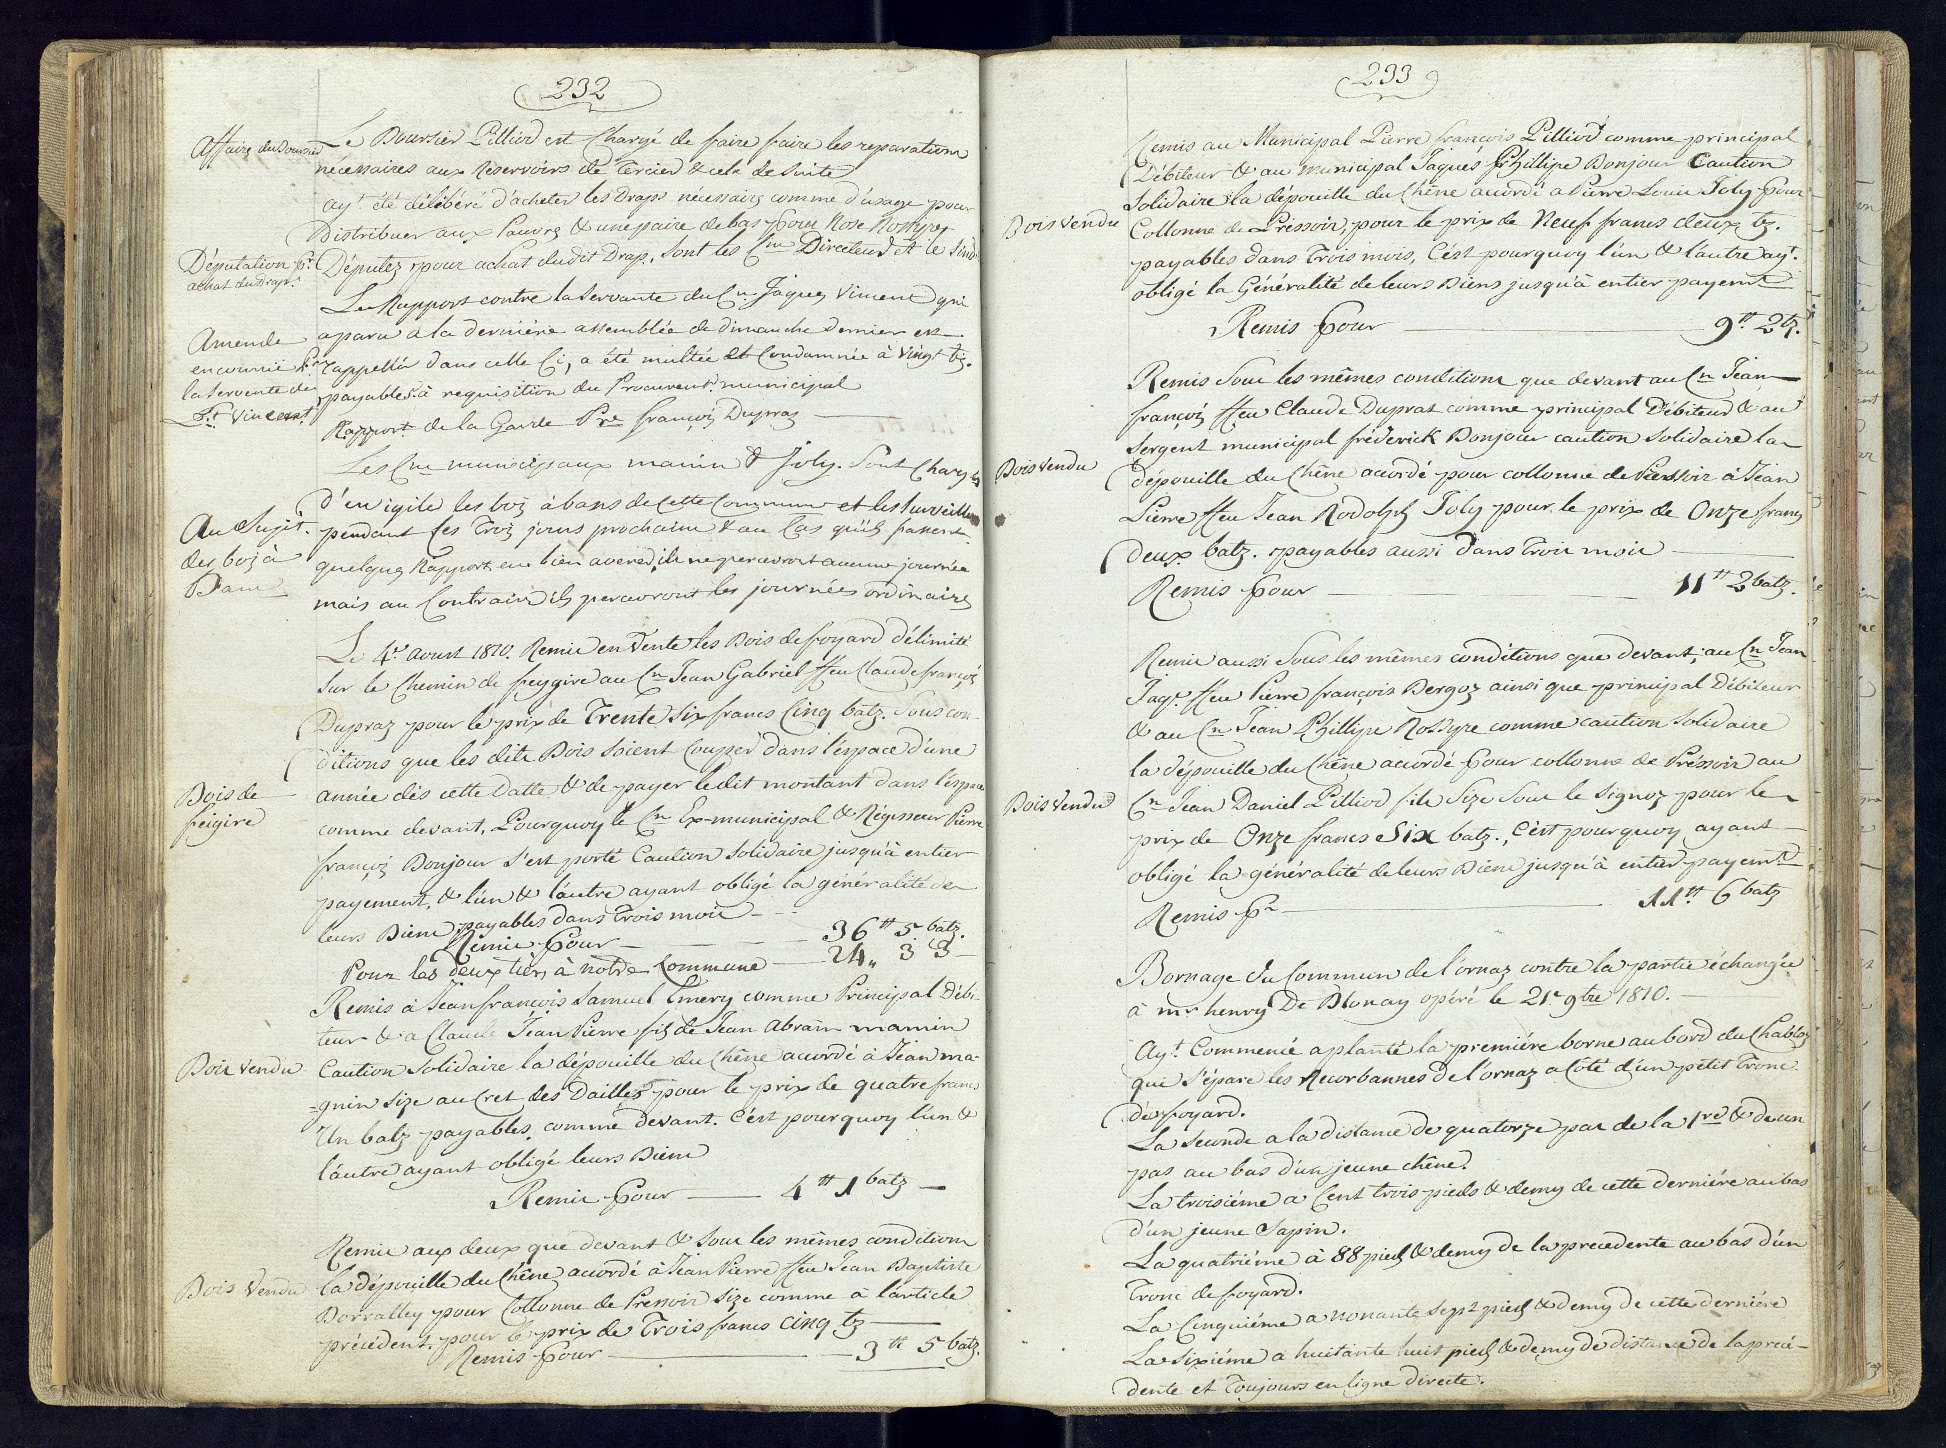 232
Affaire du Boursier
Le Boursier Pilliod est Chargé de faire faire les reparations
nécessaires aux Reservoirs de Tercier & cela de Suite
ayt. été délibéré d'acheter les Draps nécessaires comme d'usage pour
Distribuer aux Pauvres & une paire de bas pour Rose Rossyre
Députation pr.
achat du Drap.
Députez pour achat dudit Drap, sont les Cns Directeur & le Sindic
Le Rapport contre la Servante du Cn. Jaques Vincent qui
Amende
encourue Par
la Servente de
Jt. Vincent
aparu a la dernière assemblée de dimanche dernier est
rappellée dans celle Ci, a été multée et Condamnée à Vingt bz.
payables à requisition du Procureur municipal
Rapport de la Garde Pre. françois Dupraz
Les Cns municipaux mamin & Joly. Sont Chargés
Au Sujet
des boz à
Bans
d'en igile les boz à bans de Cette Commune et les Surveiller
pendant ces Troiz jours prochains & au Cas qu'ils fassent
quelques Rapports ou bien averés, ils ne percevront aucune journée
mais au Contraire ils percevront les journées ordinaires
Le 4e. Aoust 1810. Remis en Vente les Bois de foyard délimité
Sur le Chemin de freygire au Cn Jean Gabriel ffeu Claude françois
Dupraz pour le prix de Trente Six francs Cinq batz. Sous con-
ditions que les dits Bois soient Coupser dans l'espace d'une
Bois de
feigire
année dès cette Datte & de payer le dit montant dans l'espace
comme devant, Pourquoy le Cn Ex-municipal & Régisseur Pierre
françois Bonjour s'est porté Caution Solidaire jusqu'à entier
payement, & l'un & l'autre ayant obligé la généralité de
leurs Biens payables dans Trois mois
Remis pour 36 tt 5 batz.
Pour les deux tiers à notre Commune 24 „ 3 3
Remis à Jean françois Samuel Emery comme Principal Débi-
teur & a Claude Jean Pierre fils de Jean Abram mamin
Bois Vendu
Caution Solidaire la dépouille du Chêne acordé à Jean ma-
-gnin size au Cret des Dailles pour le prix de quatre francs
Un batz payables comme devant. C'ést pourquoy l'un &
l'autre ayant obligé leurs Biens
Remis pour 4 tt 1 batz
Remis aux deux que devant & sous les mêmes conditions
Bois Vendu
la dépouille du Chêne acordé à Jean Pierre ffeu Jean Baptiste
Borralley pour Collonne de Pressoir size comme a l'article
précédent. pour le prix de Trois francs cinq bz
Remis pour 3 tt 5 batz.
233
Remis au Municipal Pierre françois Pilliod comme principal
Débiteur & au municipal Jaques Phillipe Bonjour Caution
Solidaire la dépouille du Chêne acordé a Pierre Louis Joly pour
Bois Vendu
Collonne de Pressoir, pour le prix de Neuf francs deux bz.
payables dans Trois mois, C'ést pourquoy l'un & l'autre ayt.
obligé la Généralité de leurs Biens jusqu'à entier payemt.
Remis pour 9 tt 2 bz.
Remis Sous les mêmes conditions que devant au Cn Jean
françois ffeu Claude Duprat comme principal Débiteur & au
Sergent municipal fréderick Bonjour caution Solidaire la
Bois Vendu
dépouille du Chêne acordé pour collonne de Pressoir à Jean
Pierre ffeu Jean Rodolph Joly pour le prix de Onze francs
deux batz. payables aussi dans Trois mois
Remis pour 11 tt 2 batz.
Remis aussi Sous les mêmes conditions que devant, au Cn Jean
Jaqs. ffeu Pierre françois Bergoz ainsi que principal Débiteur
& au Cn Jean Phillipe Rossyre comme caution Solidaire
la dépouille du Chêne acordé pour collonne de Préssoir au
Bois Vendu
Cn Jean Daniel Pilliod fils Size Sous le Signoz pour le
prix de Onze francs Six batz., C'ést pourquoy ayant
obligé la généralité de leurs Biens jusqu'à entier payemt.
Remis pr 11 tt 6 batz
Bornage du Commun de l'ornaz contre la partie échangée
à mr. henry De Blonay opéré le 21e 9bre 1810.
Ayt. Commencé a planté la première borne au bord du Chabloz
qui S'épare les Recorbannes de l'ornaz a Côté d'un petit Tronc
de foyard.
La Seconde a la distance de quatorze pas de la 1re & de un
pas au bas d'un jeune chêne.
La troisiéme a Cent trois pieds & demy de cette derniére au bas
d'un jeune Sapin.
La quatriéme à 88 pieds & demy de la precedente au bas d'un
Tronc de foyard.
La Cinquiéme a nonante Sept pieds & demy de cette derniére
La Sixiéme a huitante huit pieds & demy de distance de la précé-
dente et Toujours en ligne directe.